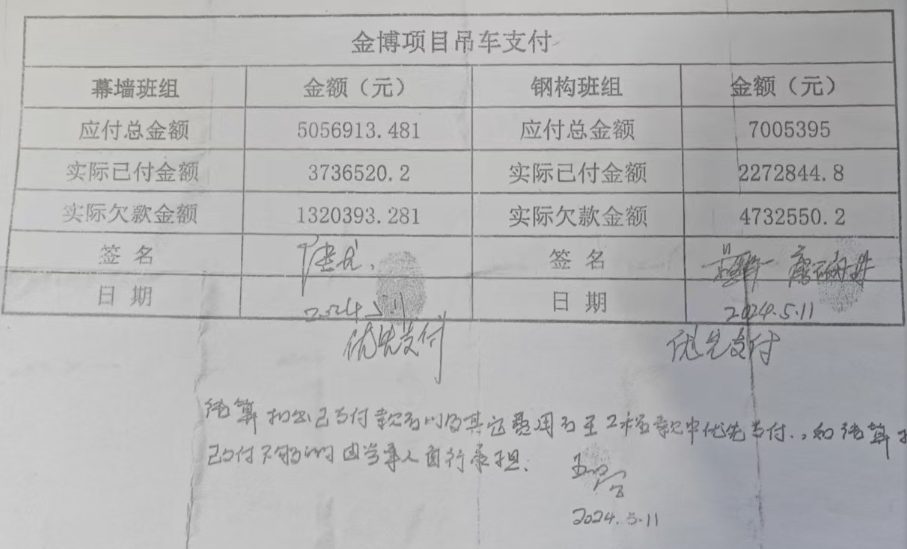 金博项目吊车支付
幕墙班组 金额（元） 钢构班组 金额（元）
应付总金额 5056913.481 应付总金额 7005395
实际已付金额 3736520.2 实际已付金额 2272844.8
实际欠款金额 1320393.281 实际欠款金额 4732550.2
签名 签名
日期 2024.5.11 日期 2024.5.11
优先支付 优先支付
结算扣出已支付款后以及其它费用后至工程款中优先支付
已付不够的由当事人自行承担.
2024.5.11